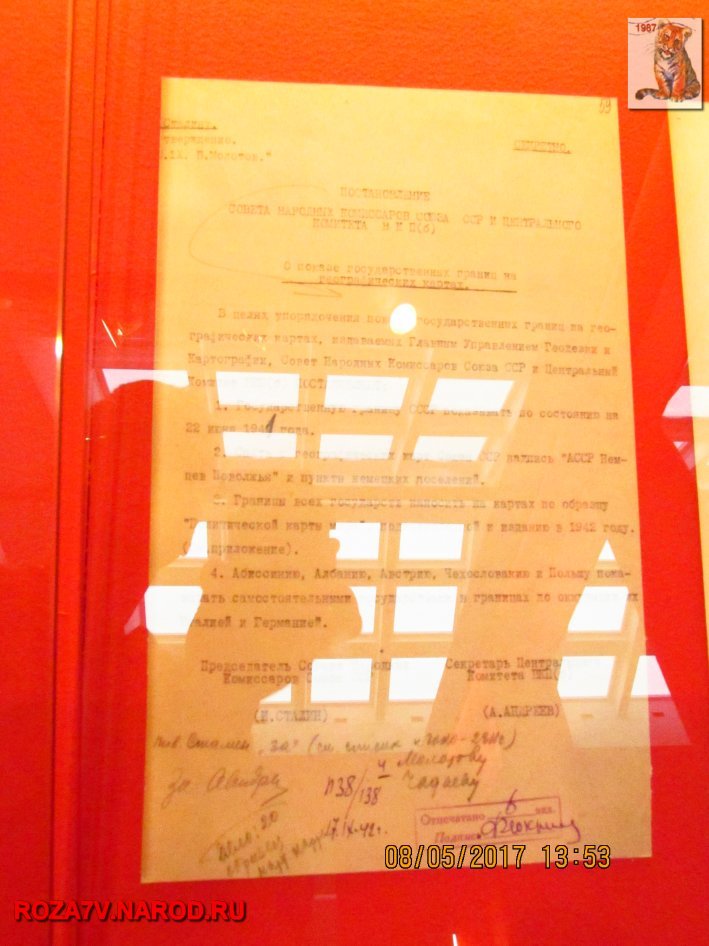 1987
59
Сталин.
СЕКРЕТНО.
.IX В.Молотов."
ПОСТАНОВЛЕНИЕ
СОВЕТА НАРОДНЫХ КОМИССАРОВ СОЮЗА ССР И ЦЕНТРАЛЬНОГО
КОМИТЕТА В К П(б)
О показе государственных границ на
географических картах.
В целях упорядочения государственных границ на гео-
графических картах, издаваемых Главным Управлением Геодезии и
Картографии, Совет Народных Комиссаров Союза ССР и Центральный
Комитет
1. Государственную границу СССР показывать по состоянию на
22 июня 1941 года.
2. ССР надпись "АССР Нем-
цев Поволжья" и пункты немецких поселений.
3. Границы всех государств наносить на картах по образцу
"Политической карты к изданию в 1942 году.
приложение).
4. Абиссинию, Албанию, Австрию, Чехословакию и Польшу пока-
зывать самостоятельными государствами в границах до
Италией и Германией.
Председатель Совета Народных
Комиссаров Союза
Секретарь Центрального
Комитета ВКП(б)
(И.СТАЛИН)
(А.АНДРЕЕВ)
тов. Сталин "за"
Молотову
Чадаеву
за Андреев
п38/138
17.IX-42г.
Отпечатано 6 экз.
Подпись
08/05/2017 13:53
ROZA7V.NAROD.RU